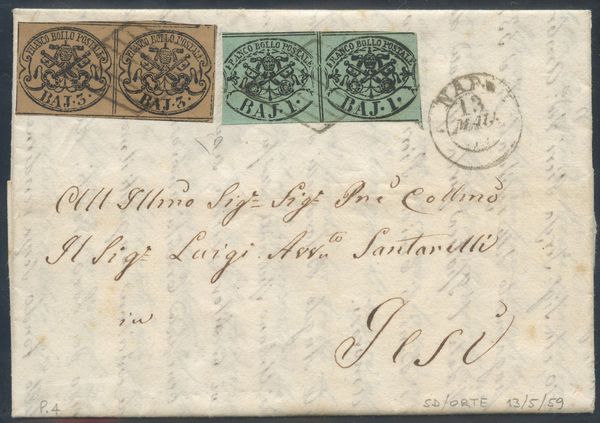 FRANCO BOLLO POSTALE FRANCO BOLLO POSTALE FRANCO BOLLO POSTALE FRANCO BOLLO POSTALE
BAJ. 3. BAJ. 3. BAJ. 1. BAJ. 1.
NAR
13
MAG.
All Illmo Sigr= Sigr Pne Collmo
Il Sigr Luigi Avvto Santarelli
in
Jesi
P.4 SD/ORTE 13/5/59